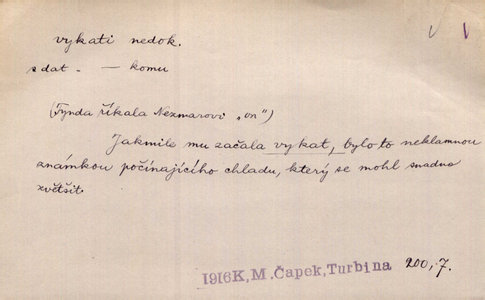 vykati nedok.
s dat. — komu
(Tynda říkala Nezmarovi „on“)
Jakmile mu začala vykat, bylo to neklamnou
známkou počínajícího chladu, který se mohl snadno
zvětšit.
1916K, M. Čapek, Turbina 200, 7.